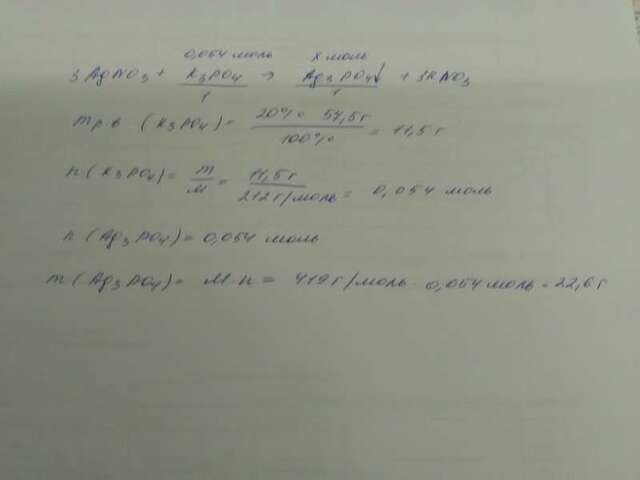 0,054 моль x моль
3 AgNO3 + K3PO4 → Ag3PO4↓ + 3KNO3
1 1
mр.в (K3PO4) = 20% · 57,5г / 100% = 11,5 г
n(K3PO4) = m / M = 11,5г / 212г/моль = 0,054 моль
n (Ag3PO4) = 0,054 моль
m (Ag3PO4) = M·n = 419г/моль · 0,054 моль = 22,6г